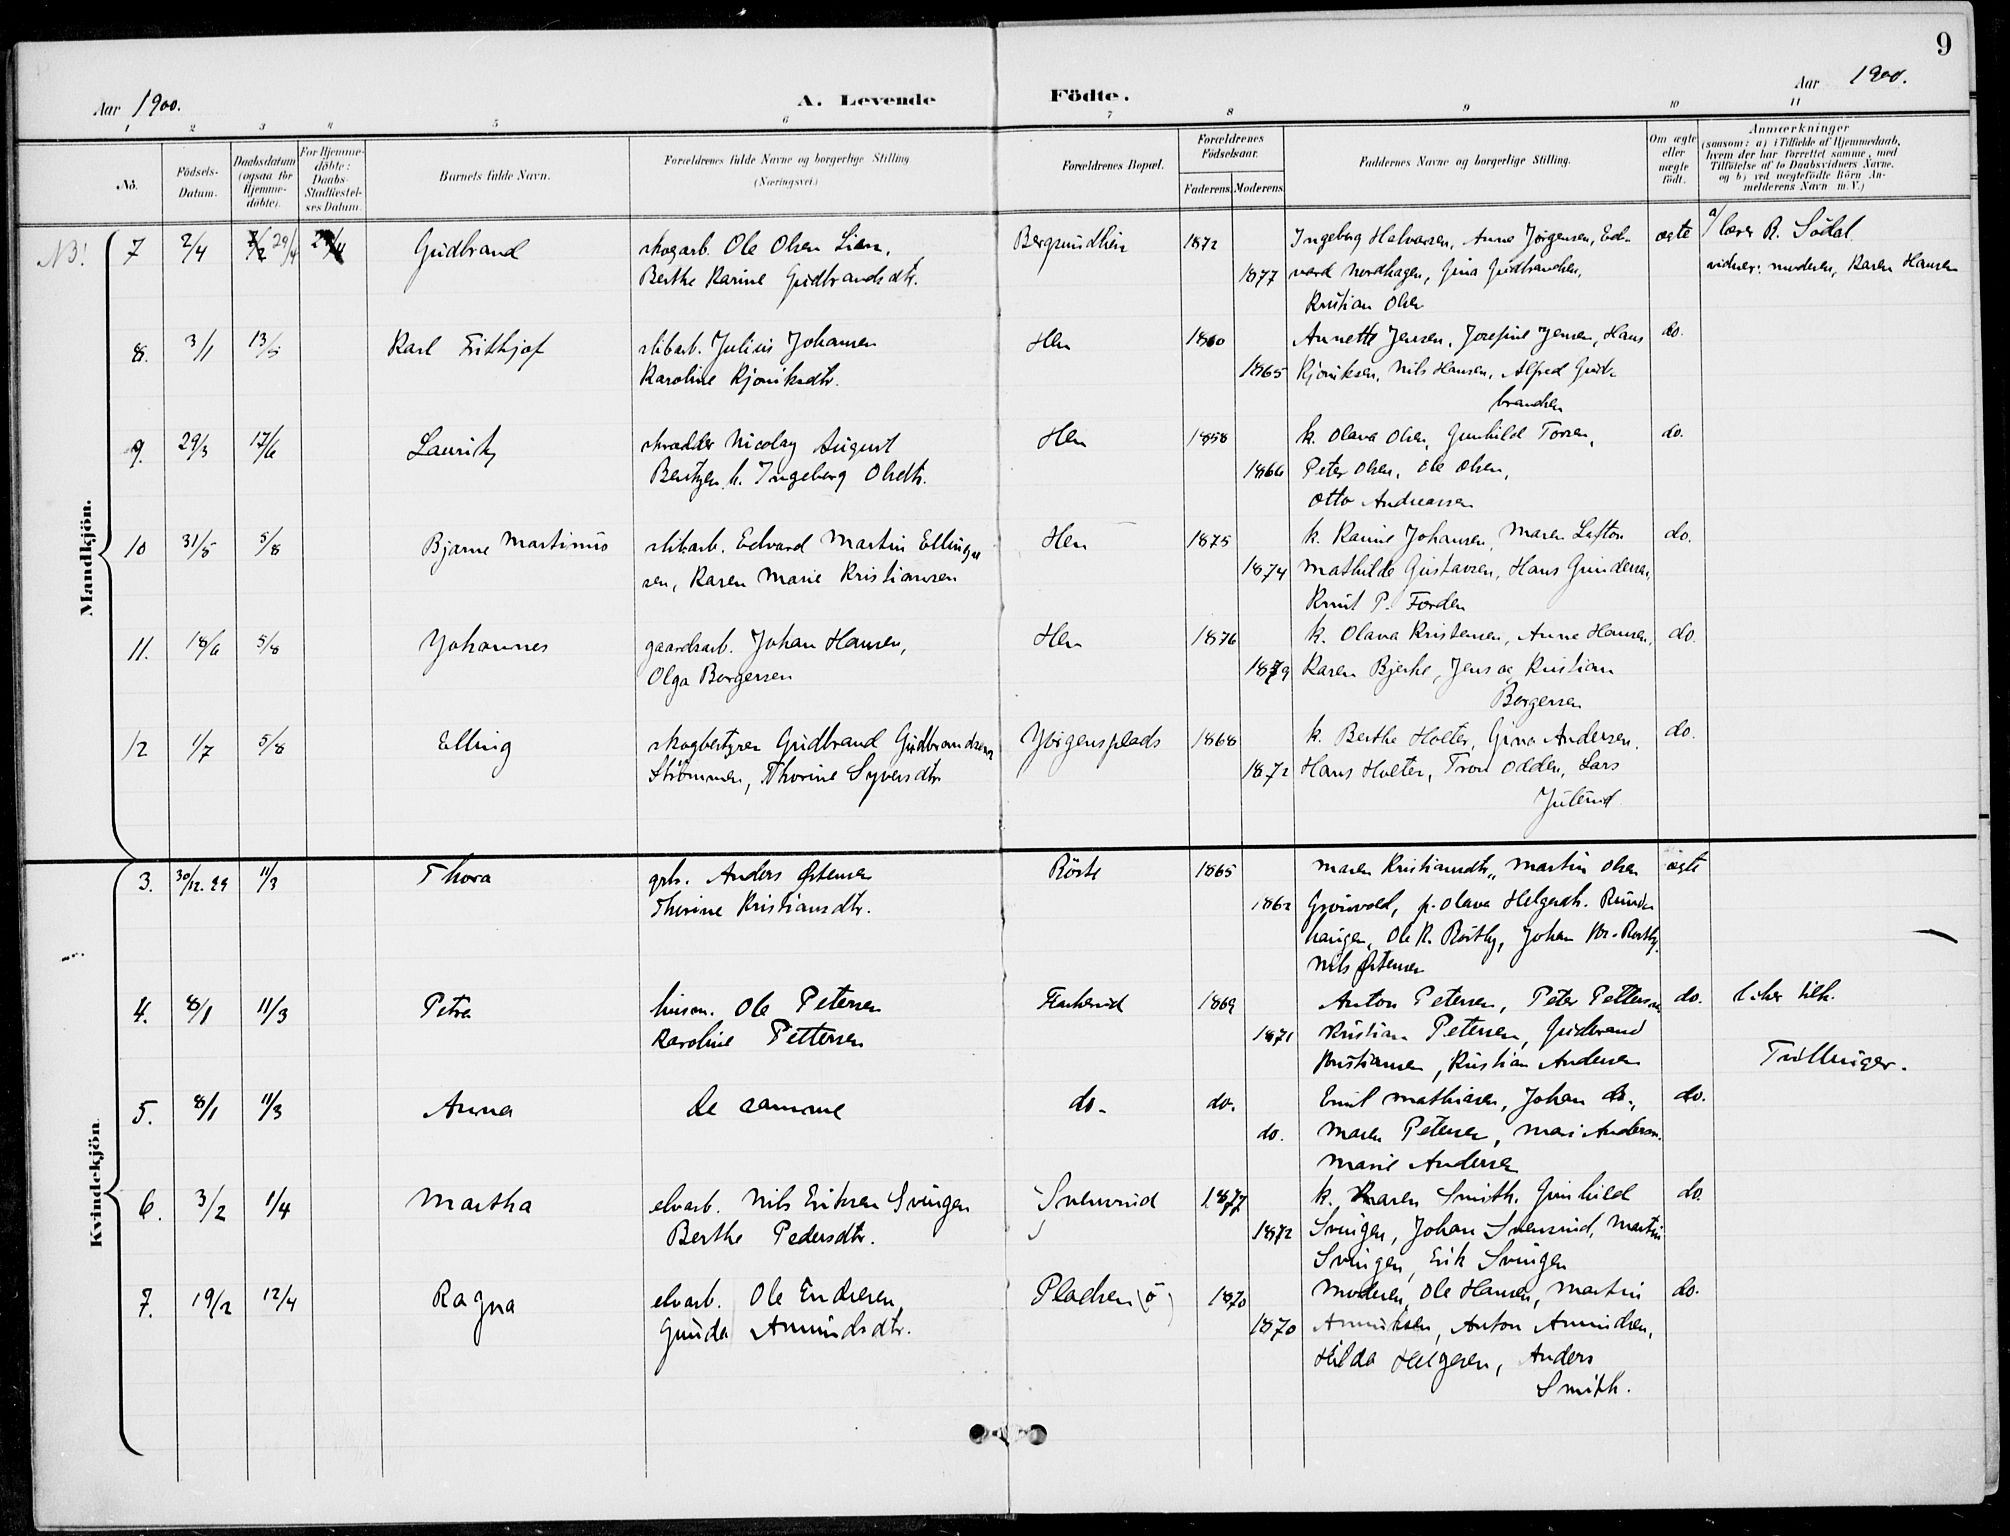 9
Aar 1900.
A. Levende Födte.
Aar 1900.
1 2 3 4 5 6 7 8 9 10 11
No.
Födsels-Datum.
Daabsdatum (ogsaa for Hjemme-döbte).
For Hjemme-döbte: Daabs-Stadfæstel-ses Datum.
Barnets fulde Navn.
Forældrenes fulde Navne og borgerlige Stilling
(Næringsvei)
Forældrenes Bopæl.
Forældrenes Födselsaar.
Faderens. Moderens.
Faddernes Navne og borgerlige Stilling.
Om ægte eller uægte födt.
Anmærkninger
(saasom: a) i Tilfælde af Hjemmedaab, hvem der har forrettet samme, med Tilföielse af to Daabsvidners Navne, og b) ved uægtefödte Börn An-melderens Navn m. V.)
Mandkjön.
NB! 7 2/4 29/4 Gudbrand skogarb. Ole Olsen Lien, 1872 Ingeborg Halvorsen, Anne Jørgensen, Ed- ægte a/ lærer R. Södal
Berthe Karine Gudbrandsdtr. 1877 vard Nordhagen, Gina Gudbrandsen, vidner: moderen, Karen Hansen
Kristian Olsen
8. 3/1 13/5 Karl Frithjof slibarb. Julius Johansen Hen 1860 Annette Jensen, Josefine Jensen, Hans do.
Karoline Kjøniksdtr. 1865 Kjøniksen, Nils Hansen, Alfred Gud-
brandsen
9. 29/3 17/6 Lauritz skrædder Nicolay August Hen 1858 k. Olava Olsen, Gunhild Torsen, do.
Bentzen, h. Ingeborg Olsdtr. 1866 Peter Olsen, Ole Olsen,
Otto Andreassen
10 31/5 5/8 Bjarne Martinus slibarb. Edvard Martin Ellingsen Hen 1875 k. Karine Johansen, Maren Lofton do.
sen, Karen Marie Kristiansen 1874 Mathilde Gustavsen, Hans Gundersen,
Knut P. Forden
11. 18/6 5/8 Johannes gaardsarb. Johan Hansen, Hen 1876 k. Olava Kristensen, Anne Hansen, do.
Olga Borgersen 1879 Karen Bjerke, Jens og Kristian
Borgersen
12 1/7 5/8 Elling skogbestyrer Gudbrand Gudbrandsen Jörgensplads 1868 k. Berthe Holter, Gina Andersen, do.
Strømmen, Thorine Syversdtr. 1872 Hans Holter, Tron Odden, Lars
Julerud
Kvindekjön.
3. 30/12. 99 11/3 Thora Anders Østensen 1865 Maren Kristiansdtr., Martin Olsen ægte
Thorine Kristiansdtr. 1862 Grönvold, p. Olava Helgesdtr. Runde
haugen, Ole K. Röstby, Johan
Nils Østensen
4. 8/1 11/3 Petra husm. Ole Petersen 1869 Anton Petersen, Peter Pettersen do.
Karoline Pettersen 1871 Kristian Petersen, Gudbrand
Kristiansen, Kristian Andersen Tvillinger.
5. 8/1 11/3 Anna de samme do. do. Emil Mathisen, Johan do., do.
do. Maren Petersen, Mari Andersen
Marie Andersen
6. 3/2 1/4 Martha elvarb. Nils Eriksen Svingen Svensrud 1877 k. Maren Smith, Gunhild do.
Berthe Pedersdtr. 1872 Svingen, Johan Svensrud, Martin
Svingen, Erik Svingen
7. 19/2 12/4 Ragna elvarb. Ole Endresen, Pladsen (ö) 1870 Moderen, Ole Hansen, Martin do.
Gunda Amundsdtr. 1870 Anton Amundsen,
Hilda Helgesen, Anders
Smith.